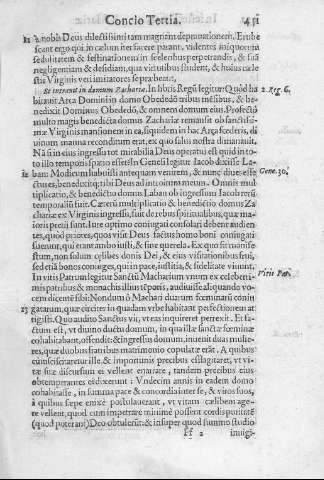 Concio Tertia. 451
à nobis Deus dilectissimi tam magnam deprauationem. Erube
scant ergo qui in cælum iter facere parant, videntes iniquorum
sedulitatem & festinationem in sceleribus perpetrandis, & suā
negligentiam & desidiam, qua virtutibus student, & huius cæle
stis Virginis veri imitatores se præbeant.
Et intrauit in domum Zachariæ. In libris Regū legitur: Quòd ha 2. Reg. 6.
bitauit Arca Domini in domo Obededō tribus mēsibus, & be-
nedixit Dominus Obededō, & omnem domum eius. Profectò
multo magis benedicta domus Zachariæ remansit ob sanctissi-
mæ Virginis mansionem in ea, siquidem in hac Arca fœderis, di
uinum manna reconditum erat, ex quo salus nostra dimanauit.
Nā si in eius ingressu tot mirabilia Deus operatus est quid in to-
to illo temporis spatio effecit? In Genesi legitur Iacob dixisse La-
12 ban: Modicum habuisti antequam venirem, & nunc diues effe Gene. 30.
ctus es, benedixitq; tibi Deus ad introitum meum. Omnis mul
tiplicatio, & benedictio domus Laban ob ingressum Iacob rerū
temporaliū fuit. Cæterū multiplicatio & benedictio domus Za
chariæ ex Virginis ingressu, fuit de rebus spiritualibus, quæ ma-
ioris pretij sunt. Iure optimo coniugati consolari debent audien
tes, quòd priores, quos visit Deus factus homo boni coniugati
fuerunt, qui erant ambo iusti, & sine querela. Ex quo fit manife-
stum, non solum cælibes donis Dei, & eius visitationibus frui,
sed etiā bonos coniuges, qui in pace, iustitia, & fidelitate viuunt.
In vitis Patrum legitur Sanctū Macharium virum ex celeberri- Vitis Pat.
mis patribus & monachis illius tēporis, audiuisse aliquando vo-
cem dicentē sibi: Nondum ò Machari duarum fœminarū coniu
13 gatarum, quæ exciter in quadam vrbe habitant perfectionem at
tigisti. Quo audito Sanctus vir, vt eas inquireret perrexit. Et fa-
ctum est, vt diuino ductu domum, in qua illæ sanctæ fœminæ
cohabitabant, offendit: & ingressus domum, inuenit duas mulie-
res, quæ duobus fratribus matrimonio copulatæ erāt. A quibus
cum sciscitaretur ille, & importunis precibus efflagitaret, vt vi-
tæ suæ discursum ei vellent enarrare, tandem precibus eius
obtemperantes edixerunt: Vndecim annis in eadem domo
cohabitasse, in summa pace & concordia inter se, & viros suos,
à quibus sæpe enixè postulauerant, vt vitam cælibem age-
re vellent, quod cum impetrare minimè possent cordis puritatē
(quod poterant) Deo obtulerūt: & insuper quod summo studio
Ff 2 inuigi-